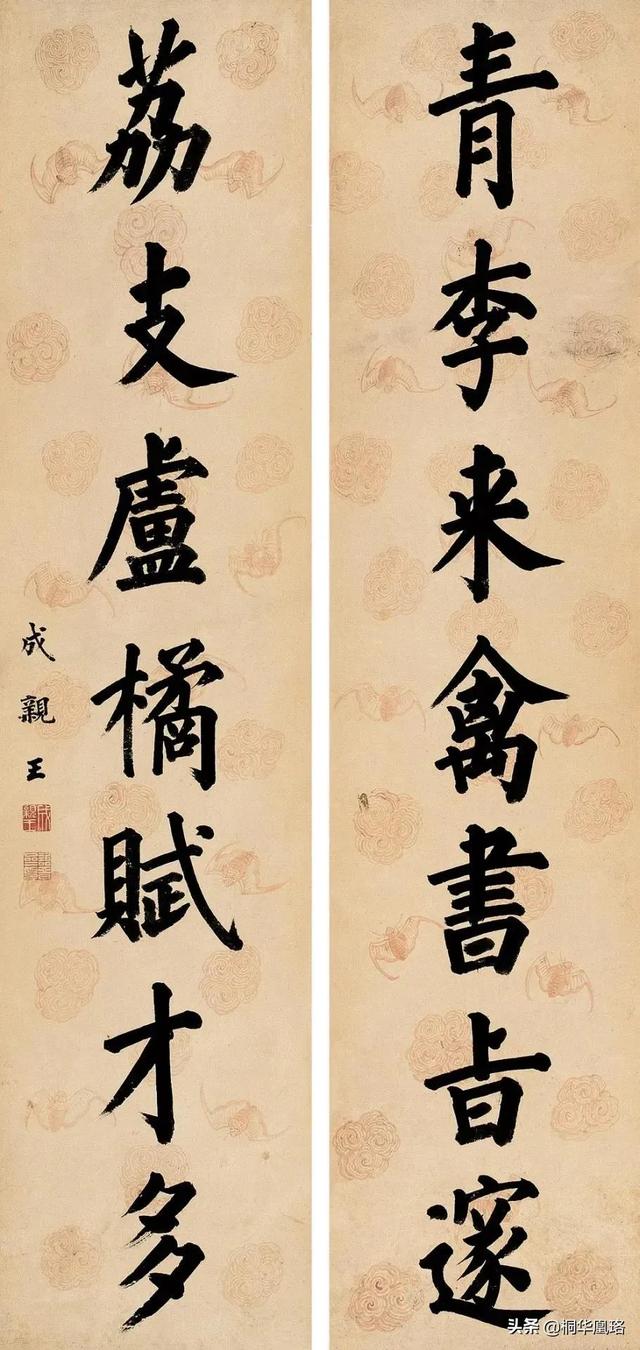 青李来禽書㫖邃
荔支盧橘賦才多
成親王
头条 @桐华凰珞